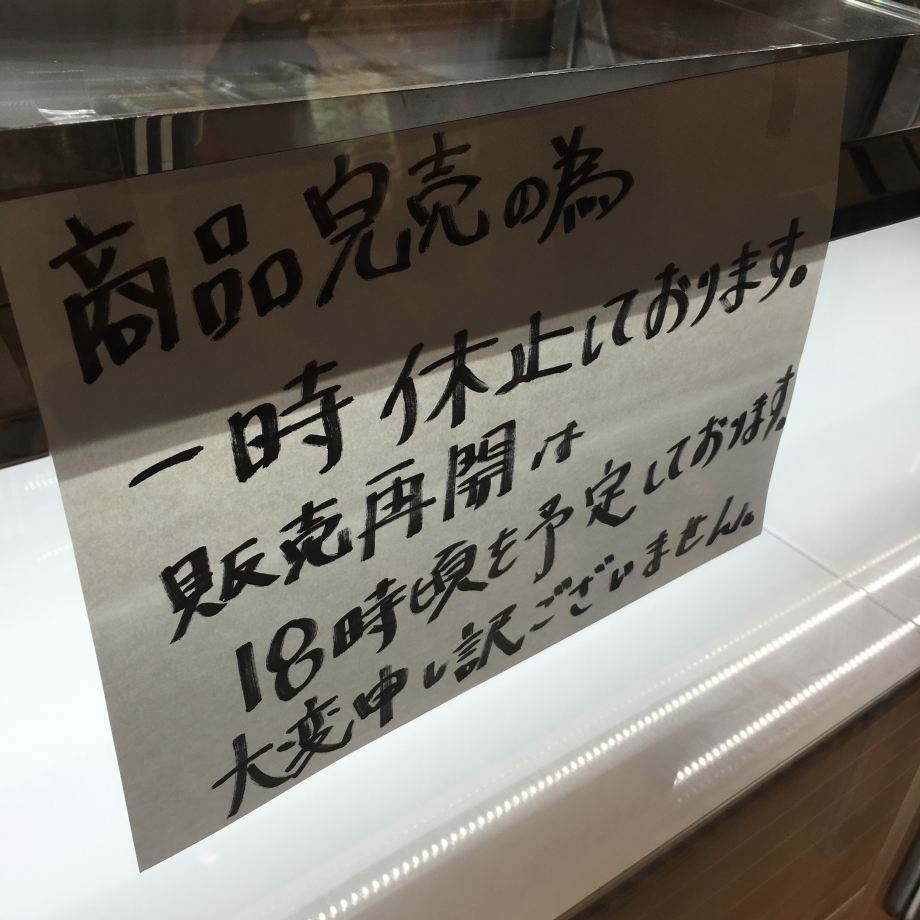 商品完売の為
一時休止しております。
販売再開は
18時頃を予定しております。
大変申し訳ございません。